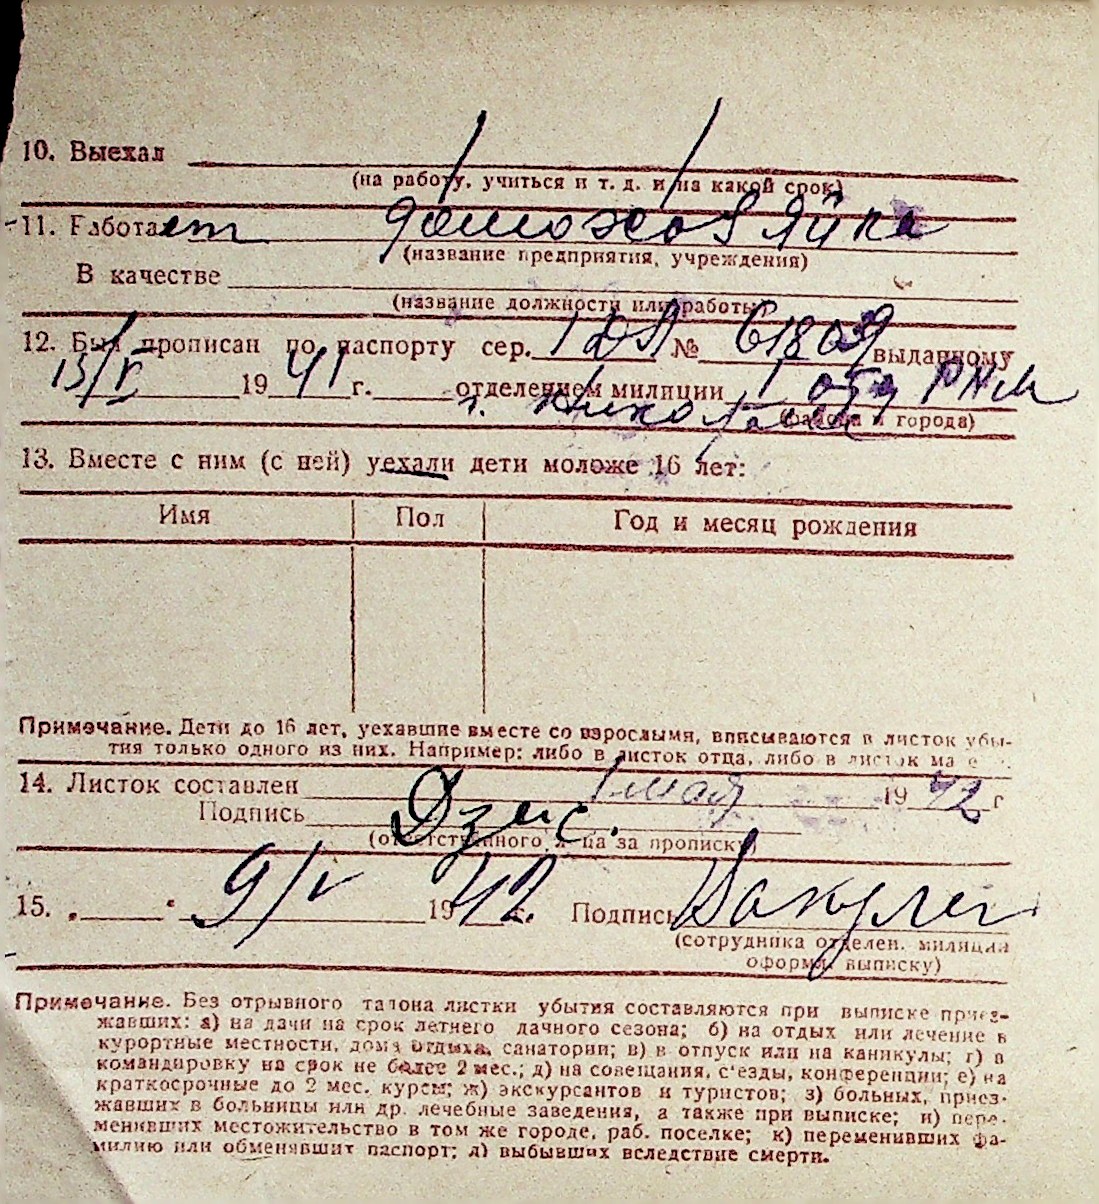 10. Выехал
(на работу, учиться и т. д. и на какой срок)
11. Работает домохозяйка
(название предприятия, учреждения)
В качестве
(название должности или работы)
12. Был прописан по паспорту сер. № 61809 выданному
13/V 1941 г. отделением милиции 1 отд РКМ
г. Николаев (района и города)
13. Вместе с ним (с ней) уехали дети моложе 16 лет:
Имя Пол Год и месяц рождения
Примечание. Дети до 16 лет, уехавшие вместе со взрослыми, вписываются в листок убы-
тия только одного из них. Например: либо в листок отца, либо в листок ма
14. Листок составлен 1 мая 1942 г
Подпись
(ответственного лица за прописку)
15. 9/V 1942 г. Подпись
(сотрудника отделен. милиции
оформ. выписку)
Примечание. Без отрывного талона листки убытия составляются при выписке приез-
жавших: а) на дачи на срок летнего дачного сезона; б) на отдых или лечение в
курортные местности, дома отдыха, санатории; в) в отпуск или на каникулы; г) в
командировку на срок не более 2 мес.; д) на совещания, с'езды, конференции; е) на
краткосрочные до 2 мес. курсы; ж) экскурсантов и туристов; з) больных, приез-
жавших в больницы или др. лечебные заведения, а также при выписке; и) пере-
менивших местожительство в том же городе, раб. поселке; к) переменивших фа-
милию или обменявших паспорт; л) выбывших вследствие смерти.